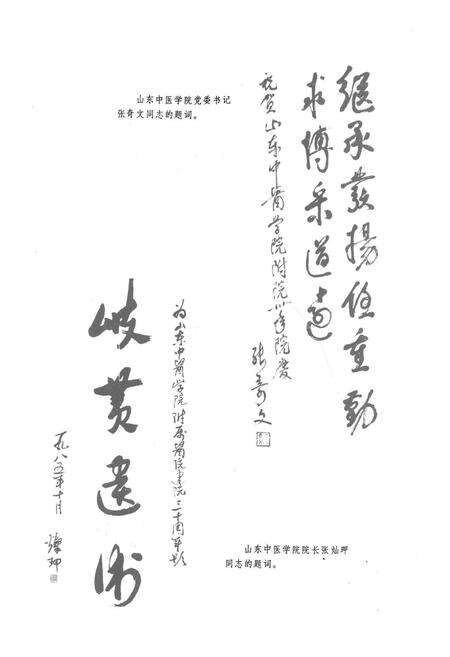 山东中医学院党委书记
张奇文同志的题词。
继承發揚任重勤
求博采道遠
祝贺山东中醫学院附院卅年院慶
张奇文
岐黄遗術
为山东中醫学院附属醫院建院三十周年题
一九八五年十月
山东中医学院院长张灿玾
同志的题词。